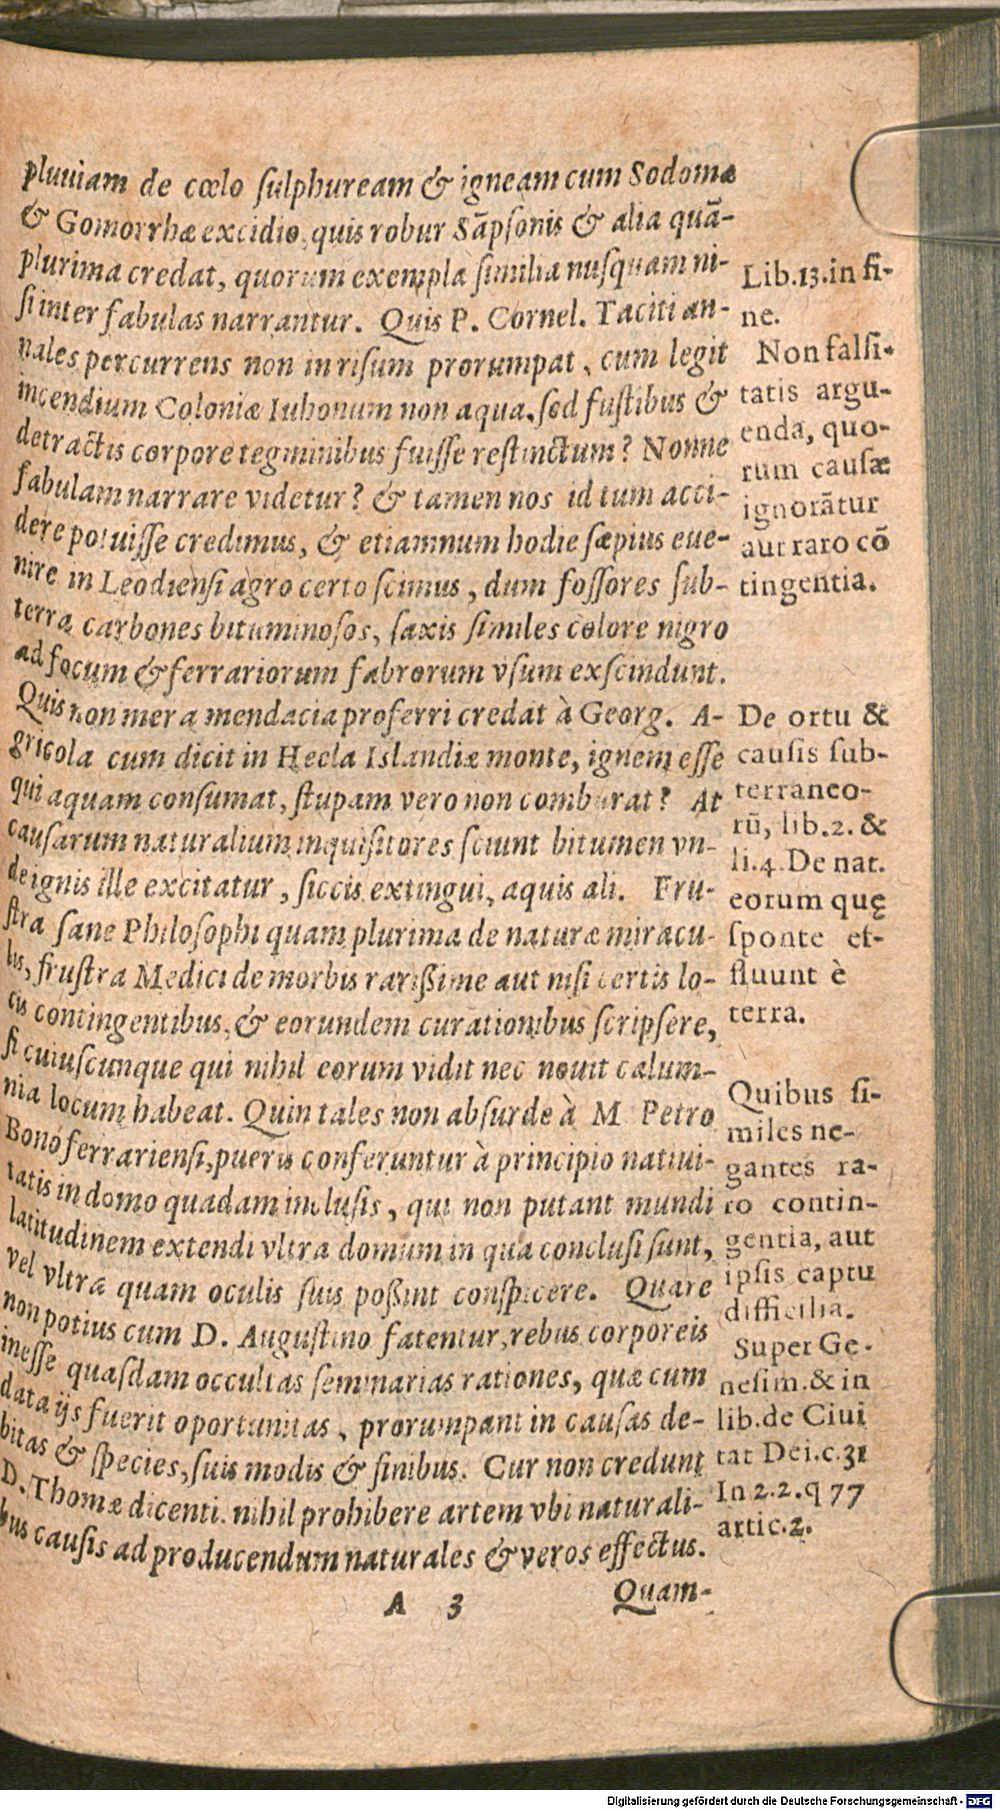 pluuiam de cœlo ſulphuream & igneam cum Sodomæ
& Gomorrhæ excidio, quis robur Sāpſonis & alia quā-
plurima credat, quorum exempla ſimilia nuſquam ni-
ſi inter fabulas narrantur. Quis P. Cornel. Taciti an-
nales percurrens non in riſum prorumpat, cum legit
incendium Coloniæ Iuhonum non aqua, ſed fuſtibus &
detractis corpore tegminibus fuiſſe reſtinctum? Nonne
fabulam narrare videtur? & tamen nos id tum acci-
dere potuiſſe credimus, & etiamnum hodie ſæpius eue-
nire in Leodienſi agro certo ſcimus, dum foſſores ſub-
terra carbones bituminoſos, ſaxis ſimiles colore nigro
ad focum & ferrariorum fabrorum vſum exſcindunt.
Quis non mera mendacia proferri credat à Georg. A-
gricola cum dicit in Hecla Islandiæ monte, ignem eſſe
qui aquam conſumat, ſtupam vero non comburat? At
cauſarum naturalium inquiſitores ſciunt bitumen vn-
de ignis ille excitatur, ſiccis extingui, aquis ali. Fru-
ſtra ſane Philoſophi quam plurima de naturæ miracu-
lis, fruſtra Medici de morbis rarißime aut niſi certis lo-
cis contingentibus, & eorundem curationibus ſcripſere,
ſi cuiuſcunque qui nihil eorum vidit nec nouit calum-
nia locum habeat. Quin tales non abſurde à M Petro
Bono ferrarienſi, pueris conferuntur à principio natiui-
tatis in domo quadam incluſis, qui non putant mundi
latitudinem extendi vltra domum in qua concluſi ſunt,
vel vltra quam oculis ſuis poßint conſpicere. Quare
non potius cum D. Auguſtino fatentur, rebus corporeis
ineſſe quaſdam occultas ſeminarias rationes, quæ cum
data ijs fuerit oportunitas, prorumpant in cauſas de-
bitas & ſpecies, ſuis modis & finibus. Cur non credunt
D. Thomæ dicenti. nihil prohibere artem vbi naturali-
bus cauſis ad producendum naturales & veros effectus.
A 3 Quam-
Lib.13.in fi-
ne.
Non falſi-
tatis argu-
enda, quo-
rum cauſæ
ignorātur
aut raro cō
tingentia.
De ortu &
cauſis ſub-
terraneo-
rū, lib.2. &
li.4. De nat.
eorum quę
ſponte ef-
fluunt è
terra.
Quibus ſi-
miles ne-
gantes ra-
ro contin-
gentia, aut
ipſis captu
difficilia.
Super Ge-
neſim. & in
lib. de Ciui
tat Dei.c.31
In 2.2.q 77
artic.2.
Digitalisierung gefördert durch die Deutsche Forschungsgemeinschaft - DFG